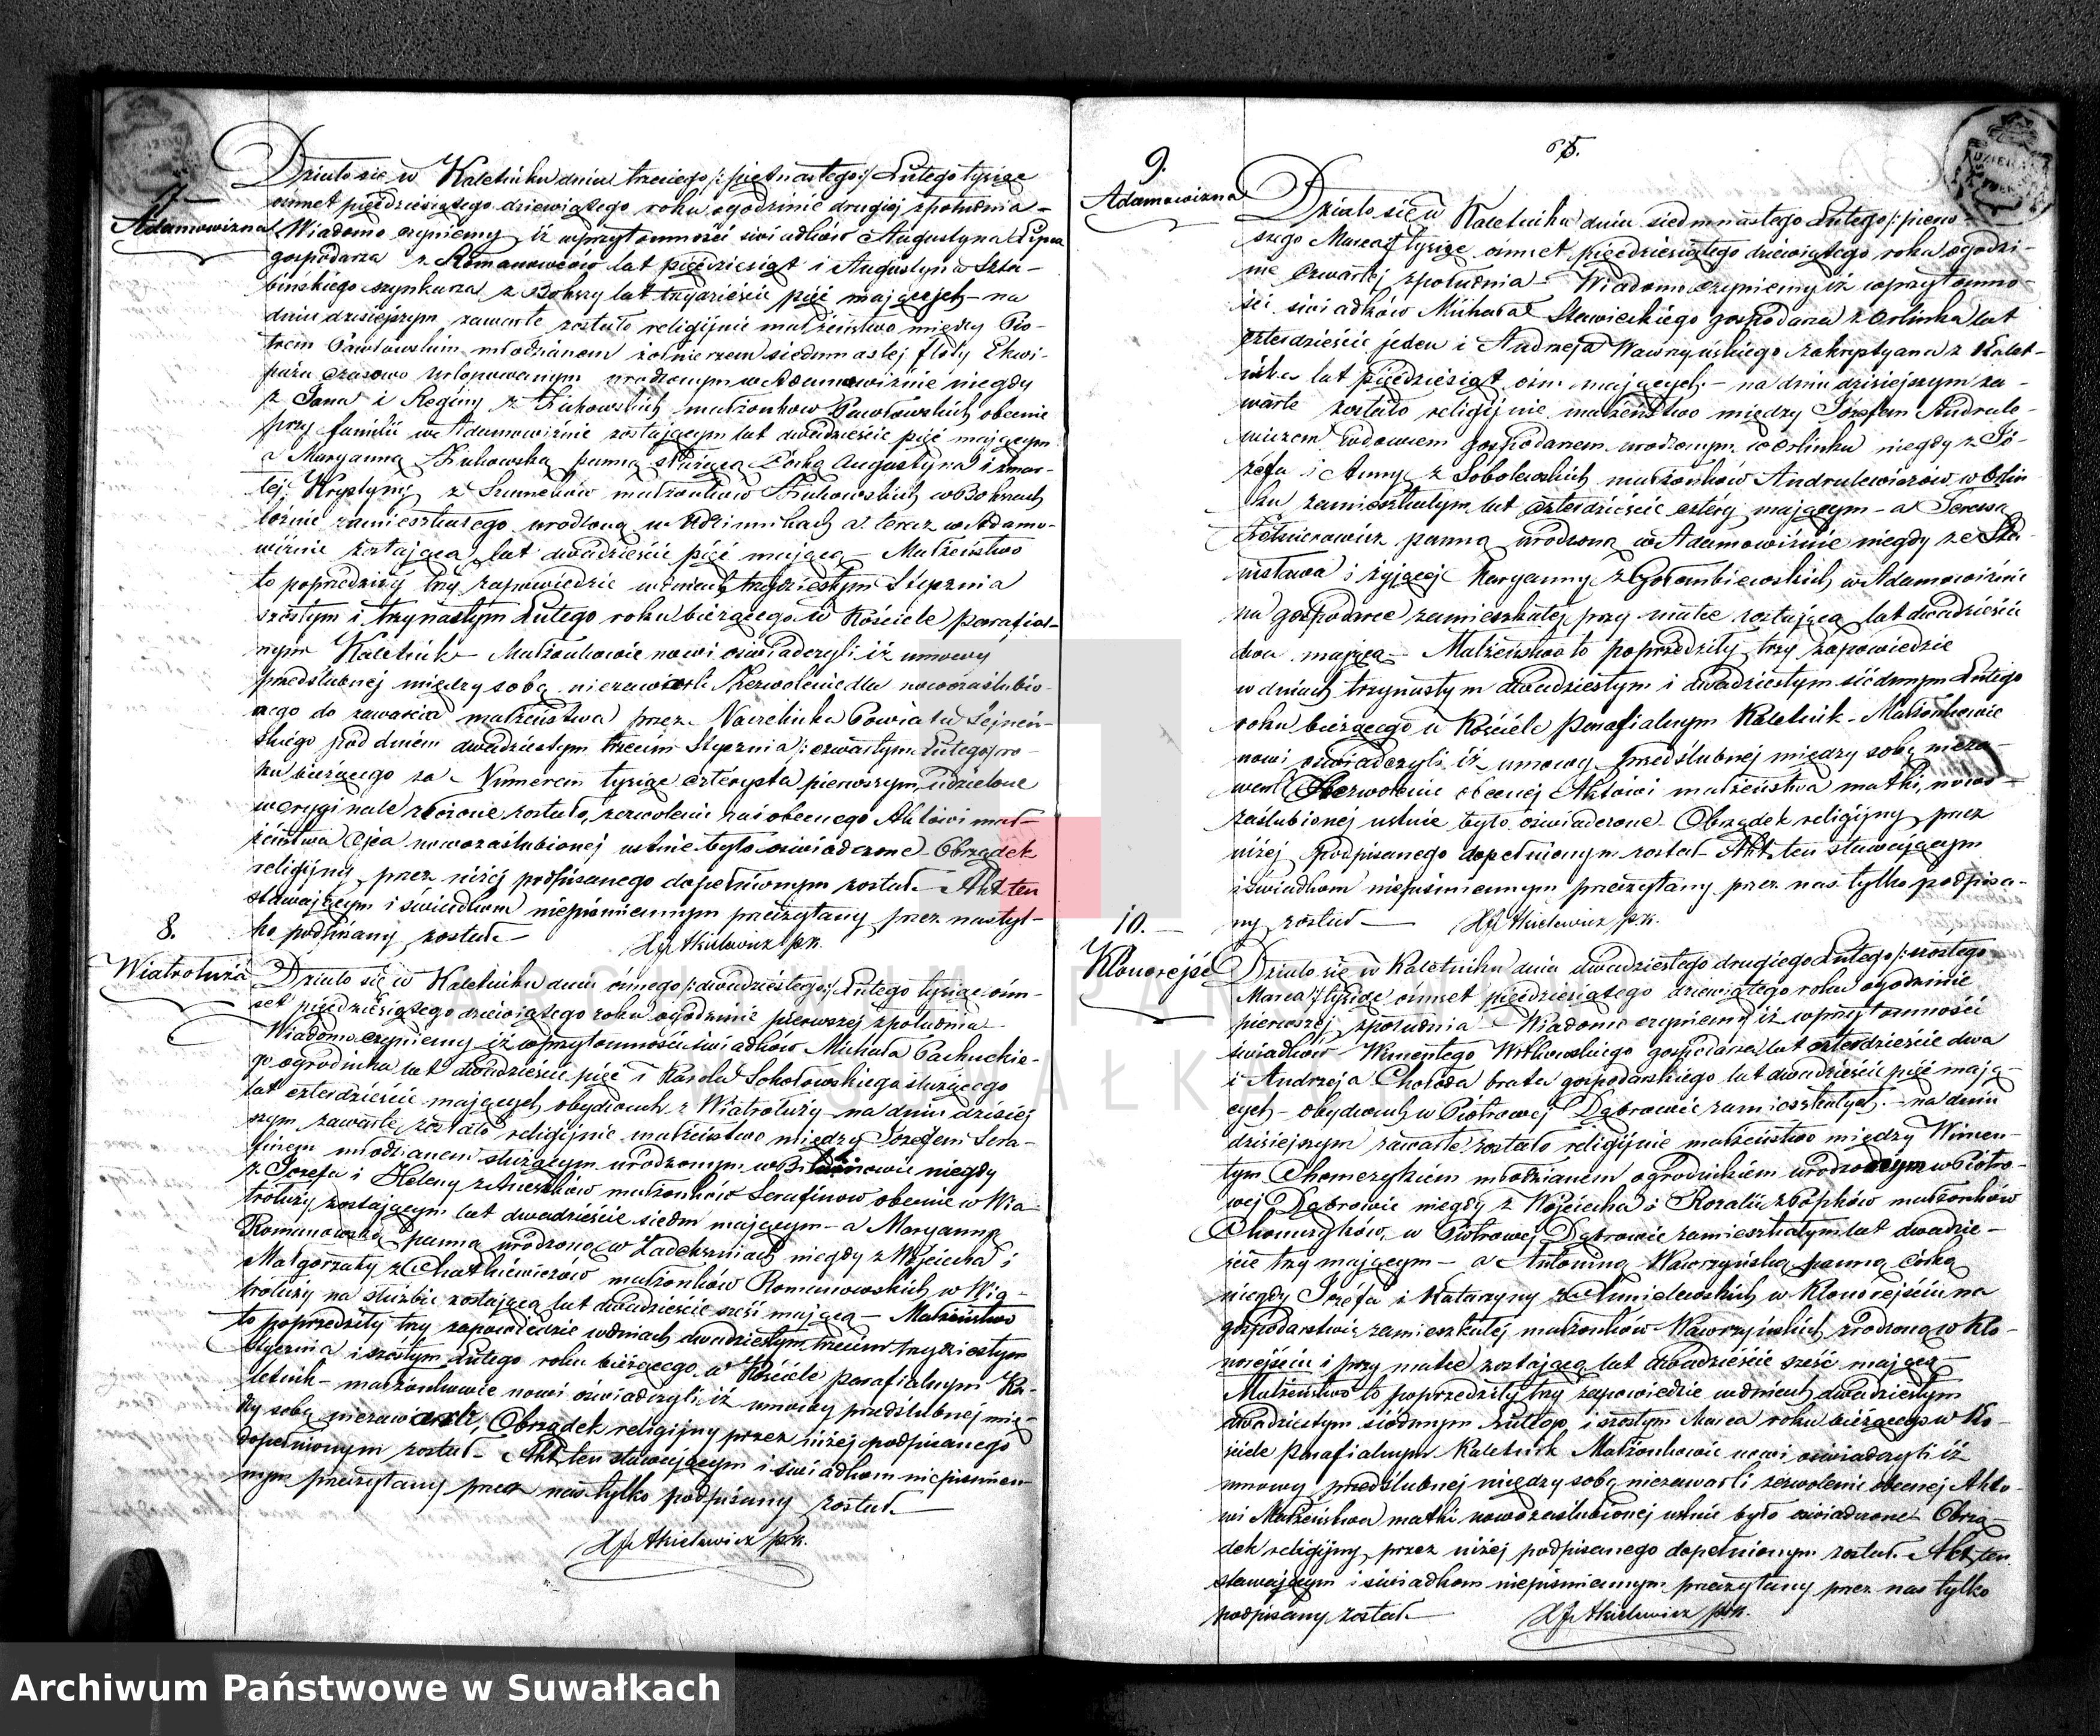 7.
Adamowizna
Działo się w Kaletniku dnia trzeciego /: piętnastego :/ Lutego tysiąc
ośmset pięćdziesiątego dziewiątego roku o godzinie drugiej z południa –
Wiadomo czyniemy iż w przytomności świadków Augustyna Lipca
gospodarza z Romanowców lat pięćdziesiąt i Augustyna Szta-
bińskiego szynkarza z Bokszy lat trzydzieście pięć mających – na
dniu dzisiejszym zawarte zostało religijnie małżeństwo między Pio-
trem Pawłowskim młodzianem żołnierzem siedmnastej floty Ekwi-
pażu czasowo urlopowanym urodzonym w Adamowiźnie niegdy
z Jana i Reginy z Żukowskich małżonków Pawłowskich obecnie
przy familii w Adamowiźnie zostającym lat dwadzieście pięć mającym
a Maryanną Żukowską panną służącą Córką Augustyna i zmar-
łej Krystyny z małżonków Żukowskich w Bokszach
luźnie zamieszkałego urodzoną w a teraz w Adamo-
wiźnie zostającą lat dwadzieście pięć mającą – Małżeństwo
to poprzedziły trzy zapowiedzie w dniach trzydziestym Stycznia
szóstym i trzynastym Lutego roku bieżącego w Kościele parafial-
nym Kaletnik – Małżonkowie nowi oświadczyli iż umowy
przedślubnej między sobą niezawarli Zezwolenie dla nowozaślubio-
nego do zawarcia małżeństwa przez Naczelnika Powiatu Sejneń-
skiego pod dniem dwudziestym trzecim Stycznia /: czwartym Lutego :/ ro-
ku bieżącego za Numerem tysiąc czterysta pierwszym udzielone
w oryginale złożone zostało, zezwolenie zaś obecnego Aktowi mał-
żeństwa Ojca nowozaślubionej ustnie było oświadczone – Obrządek
religijny przez niżej podpisanego dopełnionym został – Akt ten
stawającym i świadkom niepiśmiennym przeczytany przez nas tyl-
ko podpisany został –
X J Akielewicz p.k.
8.
Wiatrołuża
Działo się w Kaletniku dnia ósmego /: dwudziestego :/ Lutego tysiąc ośm-
set pięćdziesiątego dziewiątego roku o godzinie pierwszej z południa –
Wiadomo czyniemy iż w przytomności świadków Michała Pachuckie-
go ogrodnika lat dwadzieście pięć i Karola Sokołowskiego służącego
lat czterdzieście mających obydwóch z Wiatrołuży na dniu dzisiej
szym zawarte zostało religijnie małżeństwo między Józefem Sera-
finem młodzianem służącym urodzonym w niegdy
z Józefa i Heleny z małżonków Serafinów obecnie w Wia-
trołuży zostającym lat dwadzieście siedm mającym – a Maryanną
Romanowską panną urodzoną w niegdy z Wojciecha i
Małgorzaty z Chatkiewiczów małżonków Romanowskich w Wia-
trołuży na służbie zostającą lat dwadzieście sześć mającą – Małżeństwo
to poprzedziły trzy zapowiedzie w dniach dwudziestym trzecim trzydziestym
Stycznia i szóstym Lutego roku bieżącego w Kościele parafialnym Ka-
letnik – małżonkowie nowi oświadczyli iż umowy przedślubnej mię-
dzy sobą niezawarli, Obrządek religijny przez niżej podpisanego
dopełnionym został – Akt ten stawającym i świadkom niepiśmien-
nym przeczytany przez nas tylko podpisany został –
X J Akielewicz p.k.
9.
Adamowizna
Działo się w Kaletniku dnia siedmnastego Lutego /: pierw-
szego Marca :/ tysiąc ośmset pięćdziesiątego dziewiątego roku o godzi-
nie czwartej z południa – Wiadomo czyniemy iż w przytomno-
ści świadków Michała Sławickiego gospodarza z Orlinka lat
czterdzieście jeden i Andrzeja Wawrzyńskiego zakrystyana z Kalet-
nika lat pięćdziesiąt ośm mających – na dniu dzisiejszym za-
warte zostało religijnie małżeństwo między Józefem Andrule-
wiczem wdowcem gospodarzem urodzonym w Orlinku niegdy z Jó-
zefa i Anny z Sobolewskich małżonków Andrulewiczów w Orlin
ku zamieszkałym lat czterdzieście cztéry mającym – a Teressą
Żołnierowicz panną urodzoną w Adamowiźnie niegdy ze Sta-
nisława i żyjącej Maryanny z Gołembiewskich w Adamowiźnie
na gospodarce zamieszkałej przy matce zostającą lat dwadzieście
dwa mającą – Małżeństwo to poprzedziły trzy zapowiedzie
w dniach trzynastym dwudziestym i dwudziestym siódmym Lutego
roku bieżącego w Kościele Parafialnym Kaletnik – Małżonkowie
nowi oświadczyli iż umowy przedślubnej między sobą nieza-
warli Zezwolenie obecnej Aktowi małżeństwa matki nowo-
zaślubionej ustnie było oświadczone – Obrządek religijny przez
niżej podpisanego dopełnionym został – Akt ten stawającym
i świadkom niepiśmiennym przeczytany przez nas tylko podpisa-
ny został –
X J Akielewicz p.k.
10. –
Klonorejść
Działo się w Kaletniku dnia dwudziestego drugiego Lutego /: szóstego
Marca :/ tysiąc ośmset pięćdziesiątego dziewiątego roku o godzinie
pierwszej z południa – Wiadomo czyniemy iż w przytomności
świadków Wincentego Witkowskiego gospodarza lat czterdzieście dwa
i Andrzeja Chołoda brata gospodarskiego lat dwadzieście pięć mają-
cych – obydwóch w Piotrowej Dąbrowie zamieszkałych – na dniu
dzisiejszym zawarte zostało religijnie małżeństwo między Wincen-
tym Chomczykiem młodzianem ogrodnikiem urodzonym w Piotro-
wej Dąbrowie niegdy z Wojciecha i Rozalii z Popków małżonków
Chomczyków w Piotrowej Dąbrowie zamieszkałym lat dwadzie-
ście trzy mającym – a Antoniną Wawrzyńską panną Córką
niegdy Józefa i Katarzyny z Chmielewskich w Klonorejściu na
gospodarstwie zamieszkałej małżonków Wawrzyńskich zrodzoną w Klo-
norejściu i przy matce zostającą lat dwadzieście sześć mającą –
Małżeństwo to poprzedziły trzy zapowiedzie w dniach dwudziestym
dwudziestym siódmym Lutego i szóstym Marca roku bieżącego w Ko-
ściele Parafialnym Kaletnik Małżonkowie nowi oświadczyli iż
umowy przedślubnej między sobą niezawarli zezwolenie obecnej Akto-
wi Małżeństwa matki nowozaślubionej ustnie było oświadczone – Obrzą-
dek religijny przez niżej podpisanego dopełnionym został – Akt ten
stawającym i świadkom niepiśmiennym przeczytany przez nas tylko
podpisany został –
X J Akielewicz p.k.
ARCHIWUM PAŃSTWOWE
W SUWAŁKACH
Archiwum Państwowe w Suwałkach